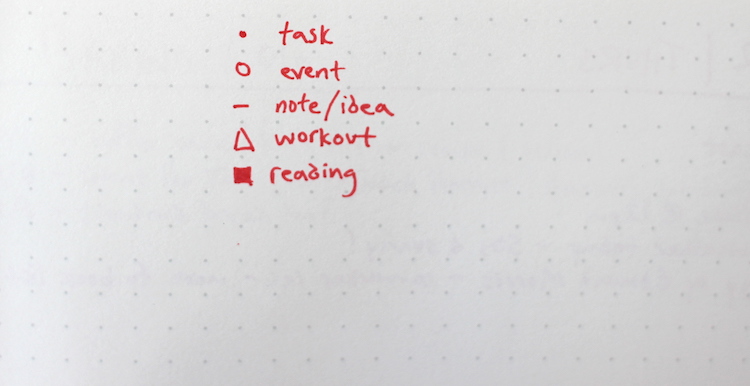 • task
○ event
– note/idea
△ workout
■ reading